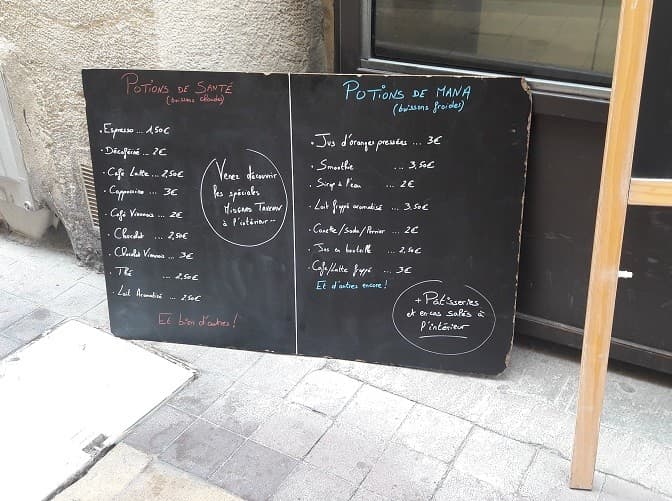 Potions de Santé
(boissons chaudes)
• Espresso ... 1,50€
• Décaféiné ... 2€
• Café Latte ... 2,50€
• Cappuccino ... 3€
• Café Viennois ... 2€
• Chocolat ... 2,50€
• Chocolat Viennois ... 3€
• Thé ... 2,50€
• Lait Aromatisé ... 2,50€
Et bien d'autres!
Venez découvrir
les spéciales
Midgard Tavern
à l'intérieur...
Potions de Mana
(boissons froides)
• Jus d'oranges pressées ... 3€
• Smoothie ... 3,50€
• Sirop à l'eau ... 2€
• Lait frappé aromatisé ... 3,50€
• Canette/Soda/Perrier ... 2€
• Jus en bouteille ... 2,50€
• Café/Latte frappé ... 3€
Et d'autres encore!
+ Pâtisseries
et en cas salés à
l'intérieur